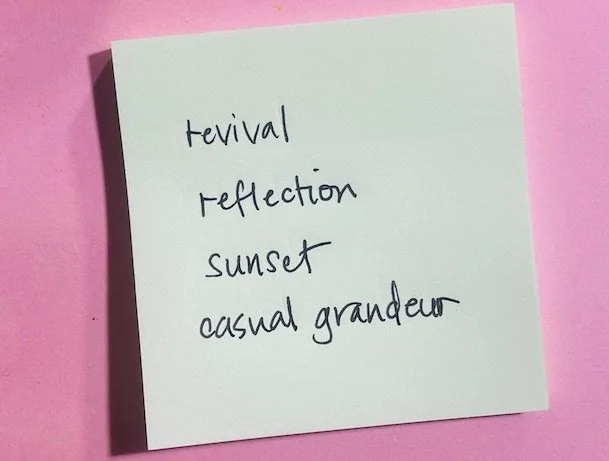 revival
reflection
sunset
casual grandeur